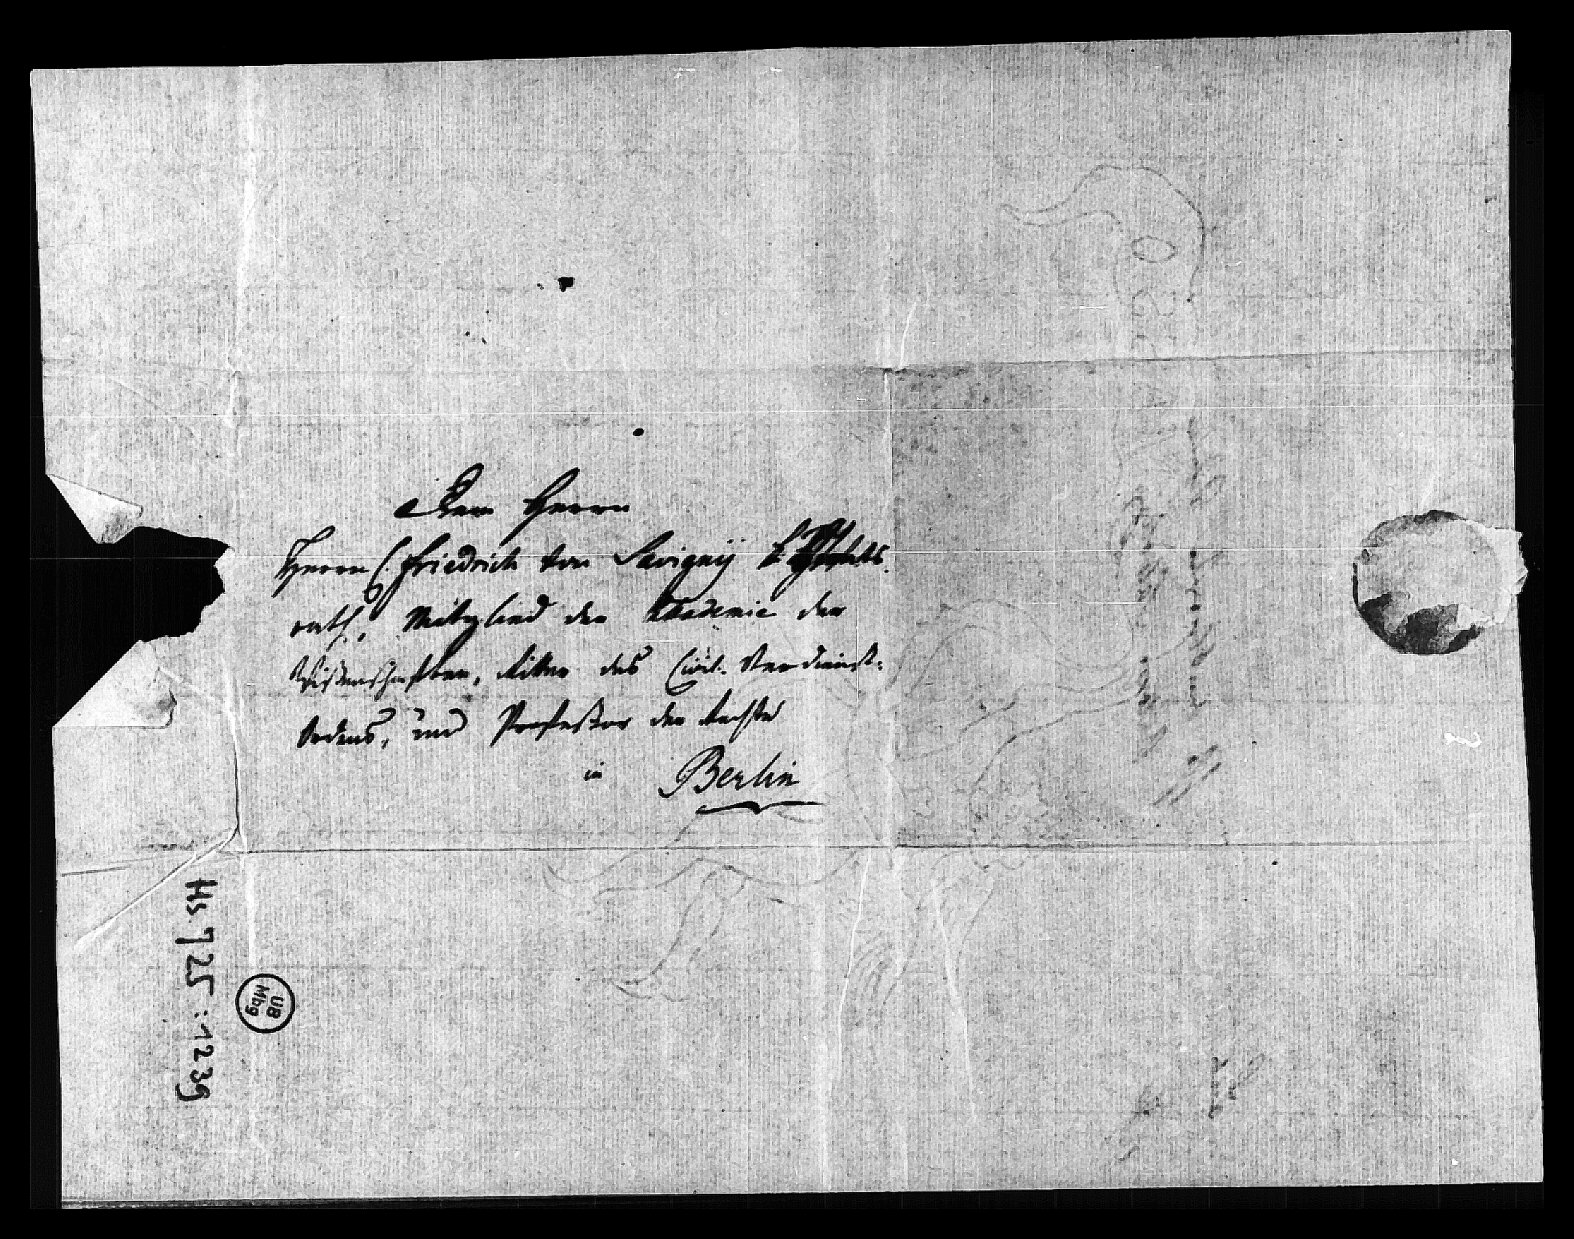 Dem Herrn
Herrn Friedrich von Savigny k. Staats-
rath, Mitglied der Akademie der
Wissenschaften, Ritter des Civil-Verdienst-
Ordens, und Professor der Rechte
in Berlin
Hs 725:1239
UB
Mbg